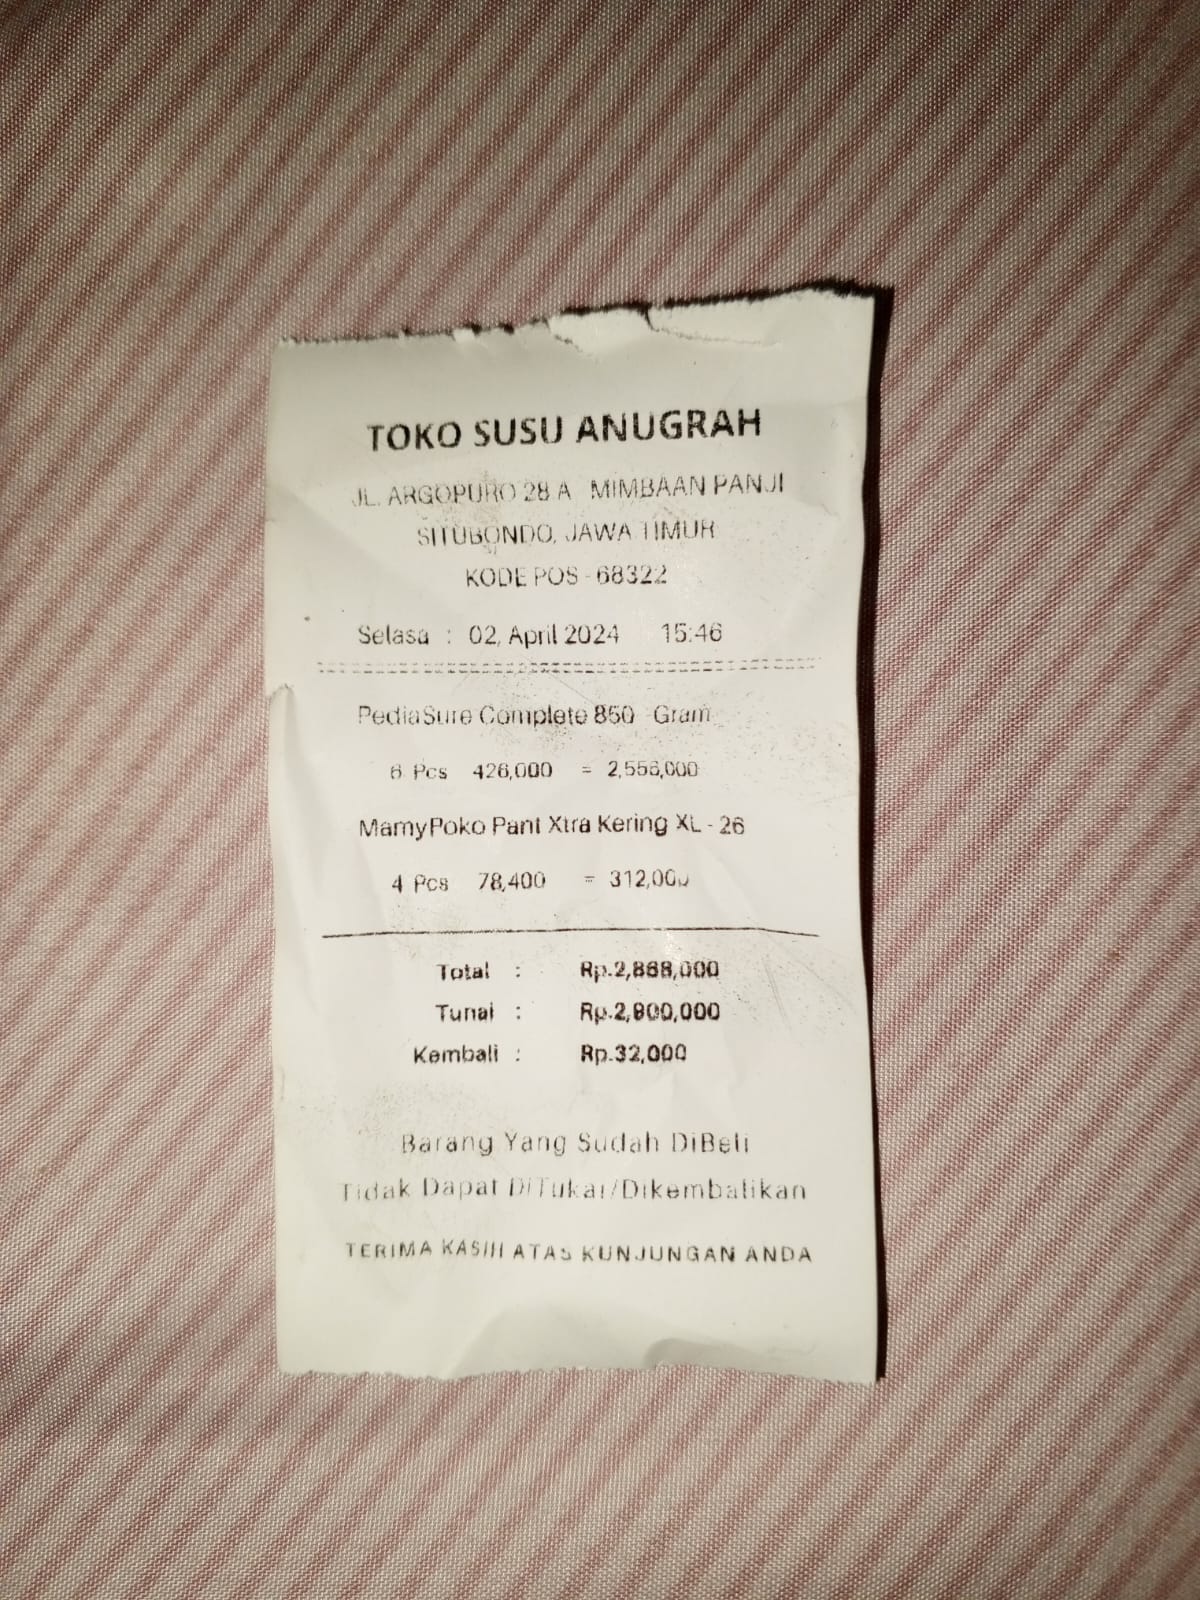 TOKO SUSU ANUGRAH
JL. ARGOPURO 28 A MIMBAAN PANJI
SITUBONDO, JAWA TIMUR
KODE POS - 68322
Selasa : 02, April 2024 15:46
PediaSure Complete 850 Gram
6 Pcs 426,000 = 2,556,000
MamyPoko Pant Xtra Kering XL - 26
4 Pcs 78,400 = 312,000
Total : Rp.2,868,000
Tunai : Rp.2,900,000
Kembali : Rp.32,000
Barang Yang Sudah DiBeli
Tidak Dapat DiTukar/Dikembalikan
TERIMA KASIH ATAS KUNJUNGAN ANDA